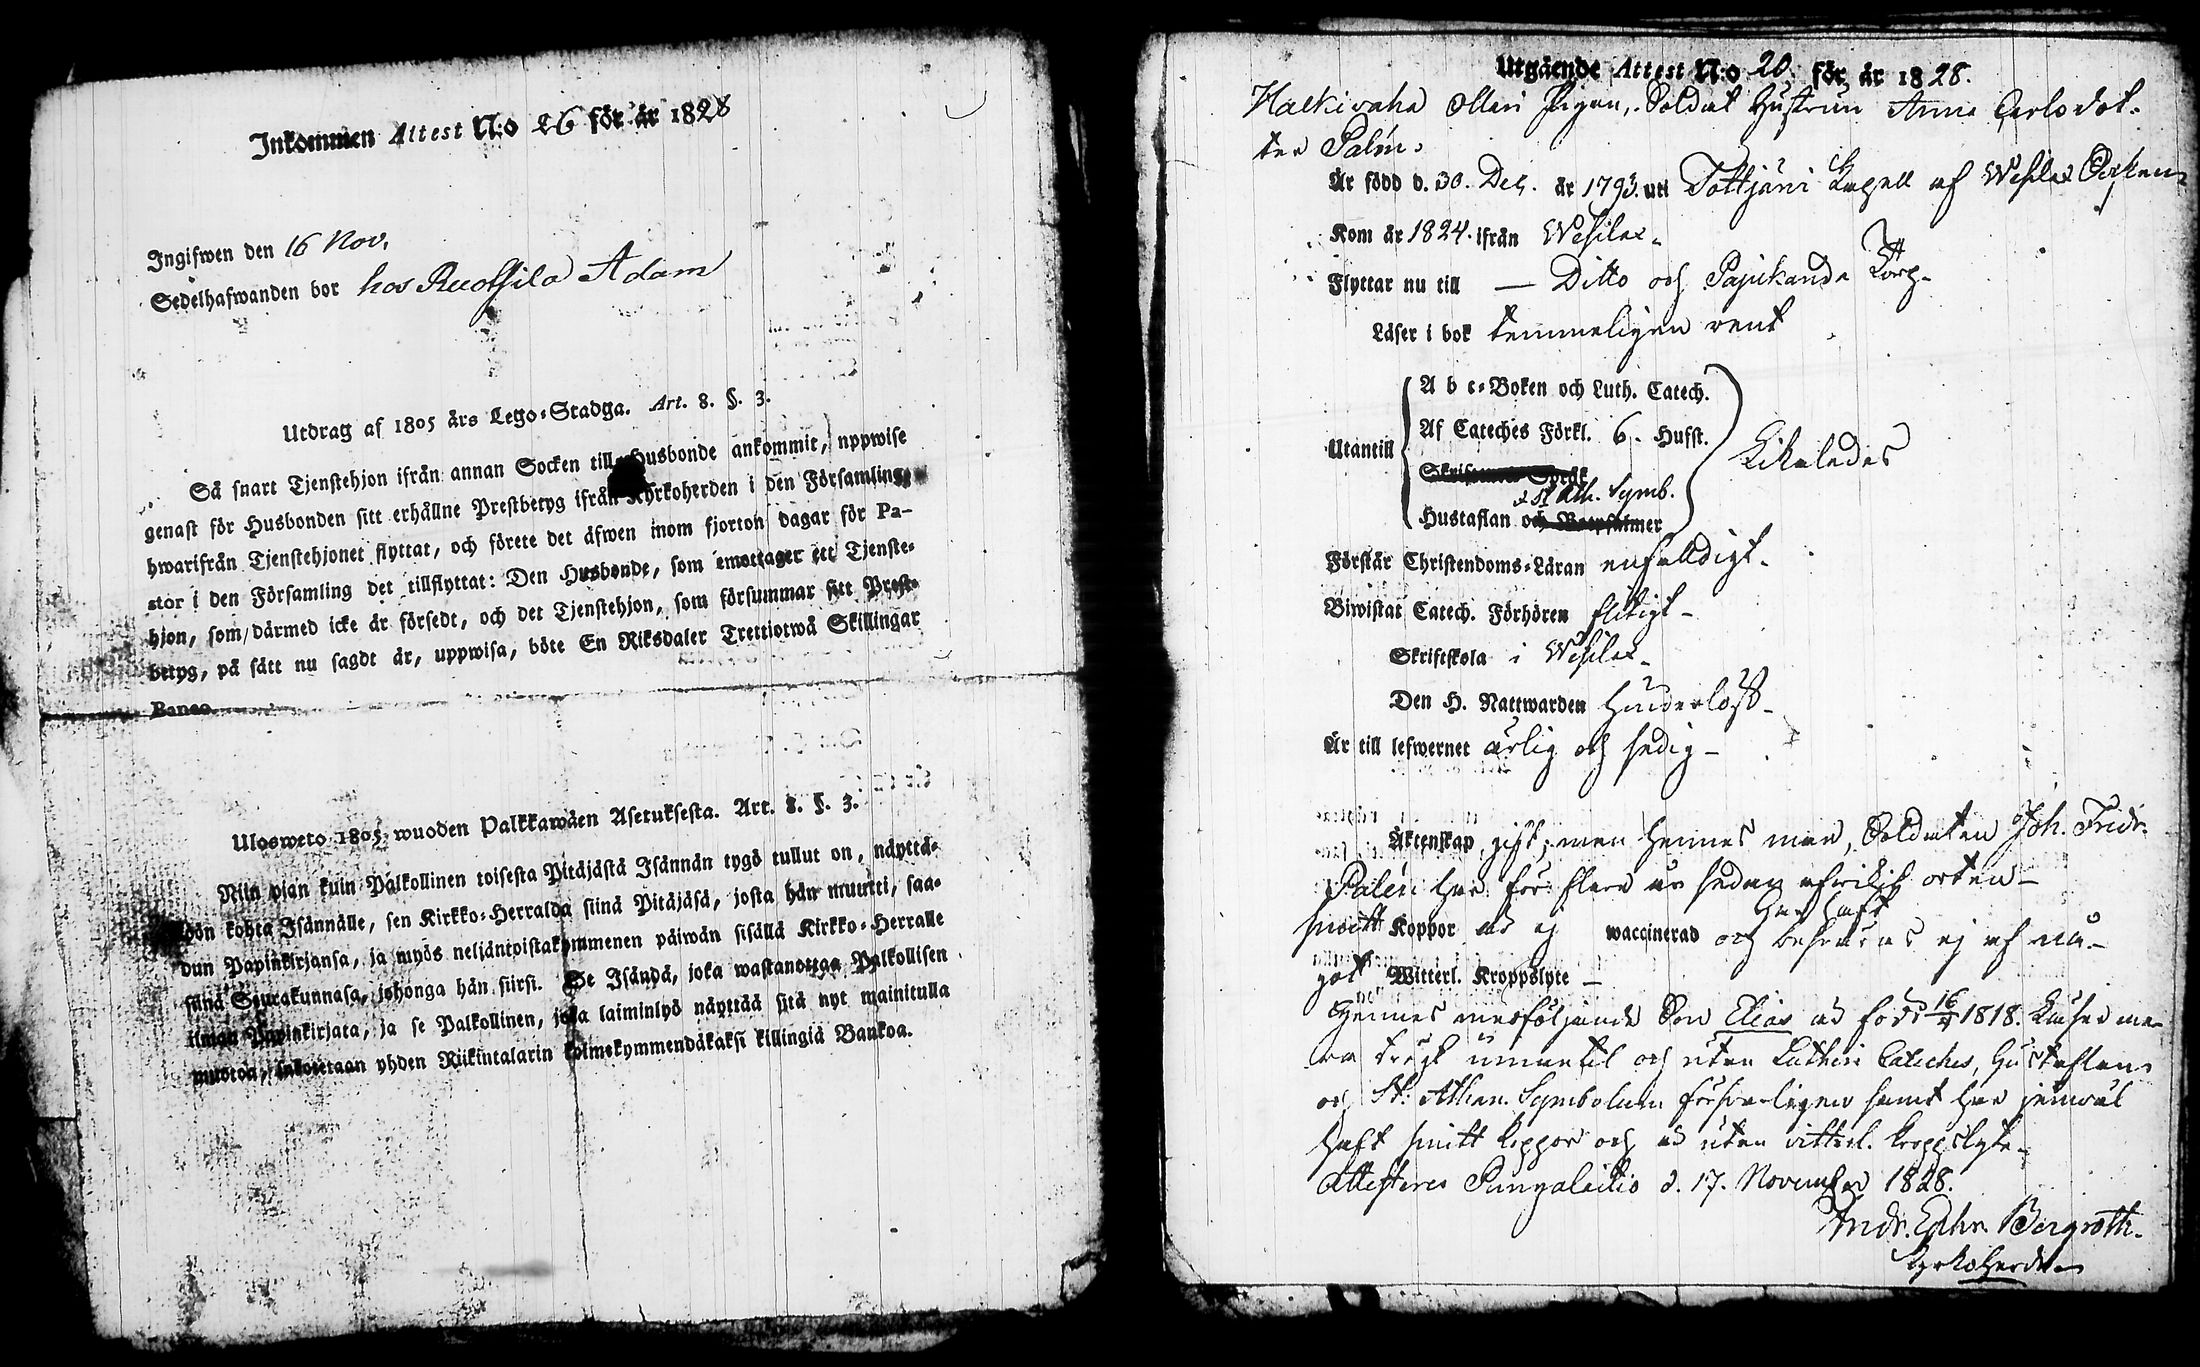 Inkommen Attest N:o 26 för år 1828
Ingifwen den 16 Nov.
Sedelhafwanden bor hos Ruotsila Adam
Utdrag af 1805 års Lego-Stadga. Art. 8. §. 3.
Så snart Tjenstehjon ifrån annan Socken till Husbonde ankommit, uppwise
genast för Husbonden sitt erhållne Prestbetyg ifrån Kyrkoherden i den Församling
hwarifrån Tjenstehjonet flyttat, och förete det äfwen inom fjorton dagar för Pa-
stor i den Församling det tillflyttat: Den Husbonde, som emottager ett Tjenste-
hjon, som därmed icke är försedt, och det Tjenstehjon, som försummar sitt Prest-
betyg, på sätt nu sagdt är, uppwisa, böte En Riksdaler Trettiotwå Skillingar
Banco.
Ulosweto 1805 wuoden Palkkawäen Asetuksesta. Art. 8. §. 3.
Niin pian kuin Palkollinen toisesta Pitäjästä Isännän tygö tullut on, näyttä-
köön kohta Isännälle, sen Kirkko-Herralda siinä Pitäjäsä, josta hän muutti, saa-
dun Papinkirjansa, ja myös neljäntoistakymmenen päiwän sisällä Kirkko-Herralle
siinä Seurakunnasa, johonga hän siirsi. Se Isändä, joka wastanottaa Palkollisen
ilman Papinkirjata, ja se Palkollinen, joka laiminlyö näyttää sitä nyt mainitulla
muotoa, sakotetaan yhden Riikintalarin kolmekymmendäkaksi killingiä Bankoa.
Utgående Attest N:o 20. för år 1828.
Halkivaha Ollari Pigan, Soldat Hustrun Anna Carlsdot-
ter Palén.
Är född d. 30. Dec. år 1793. uti Tottjärvi Kapell af Wesilax Socken
Kom år 1824. ifrån Wesilax
Flyttar nu till — Ditto och Pajukanda Torp.
Läser i bok temmeligen rent
Utantill
A b c-Boken och Luth. Catech.
Af Cateches Förkl. 6. Hufst.
Skriftenes Språk
& St Ath. Symb.
Hustaflan och Botpsalmer
Likaledes
Förstår Christendoms-Läran enfaldigt.
Biwistat Catech. Förhören flitigt
Skriftskola i Wesilax
Den H. Nattwarden hinderlöst
Är till lefwernet ärlig och sedig
Äktenskap gift, men hennes man, Soldaten Joh. Fridr.
Palén har för flera år sedan afvikit orten
haft
smitt Koppor är ej waccinerad och besväras ej af nå-
got Witterl. Kroppslyte
Hennes medföljande Son Elias är född 16/4 1818. Läser me-
ra trögt innantil och utan Lutheri Cateches, Hustaflan
och St. Athan. Symbolum försvarligen samt har jemväl
haft smitt koppor och är utan vitterl. kroppslyte
Attesteres Pungalaitio d. 17. November 1828.
Andr. Ephr. Bergroth.
Kyrkoherde